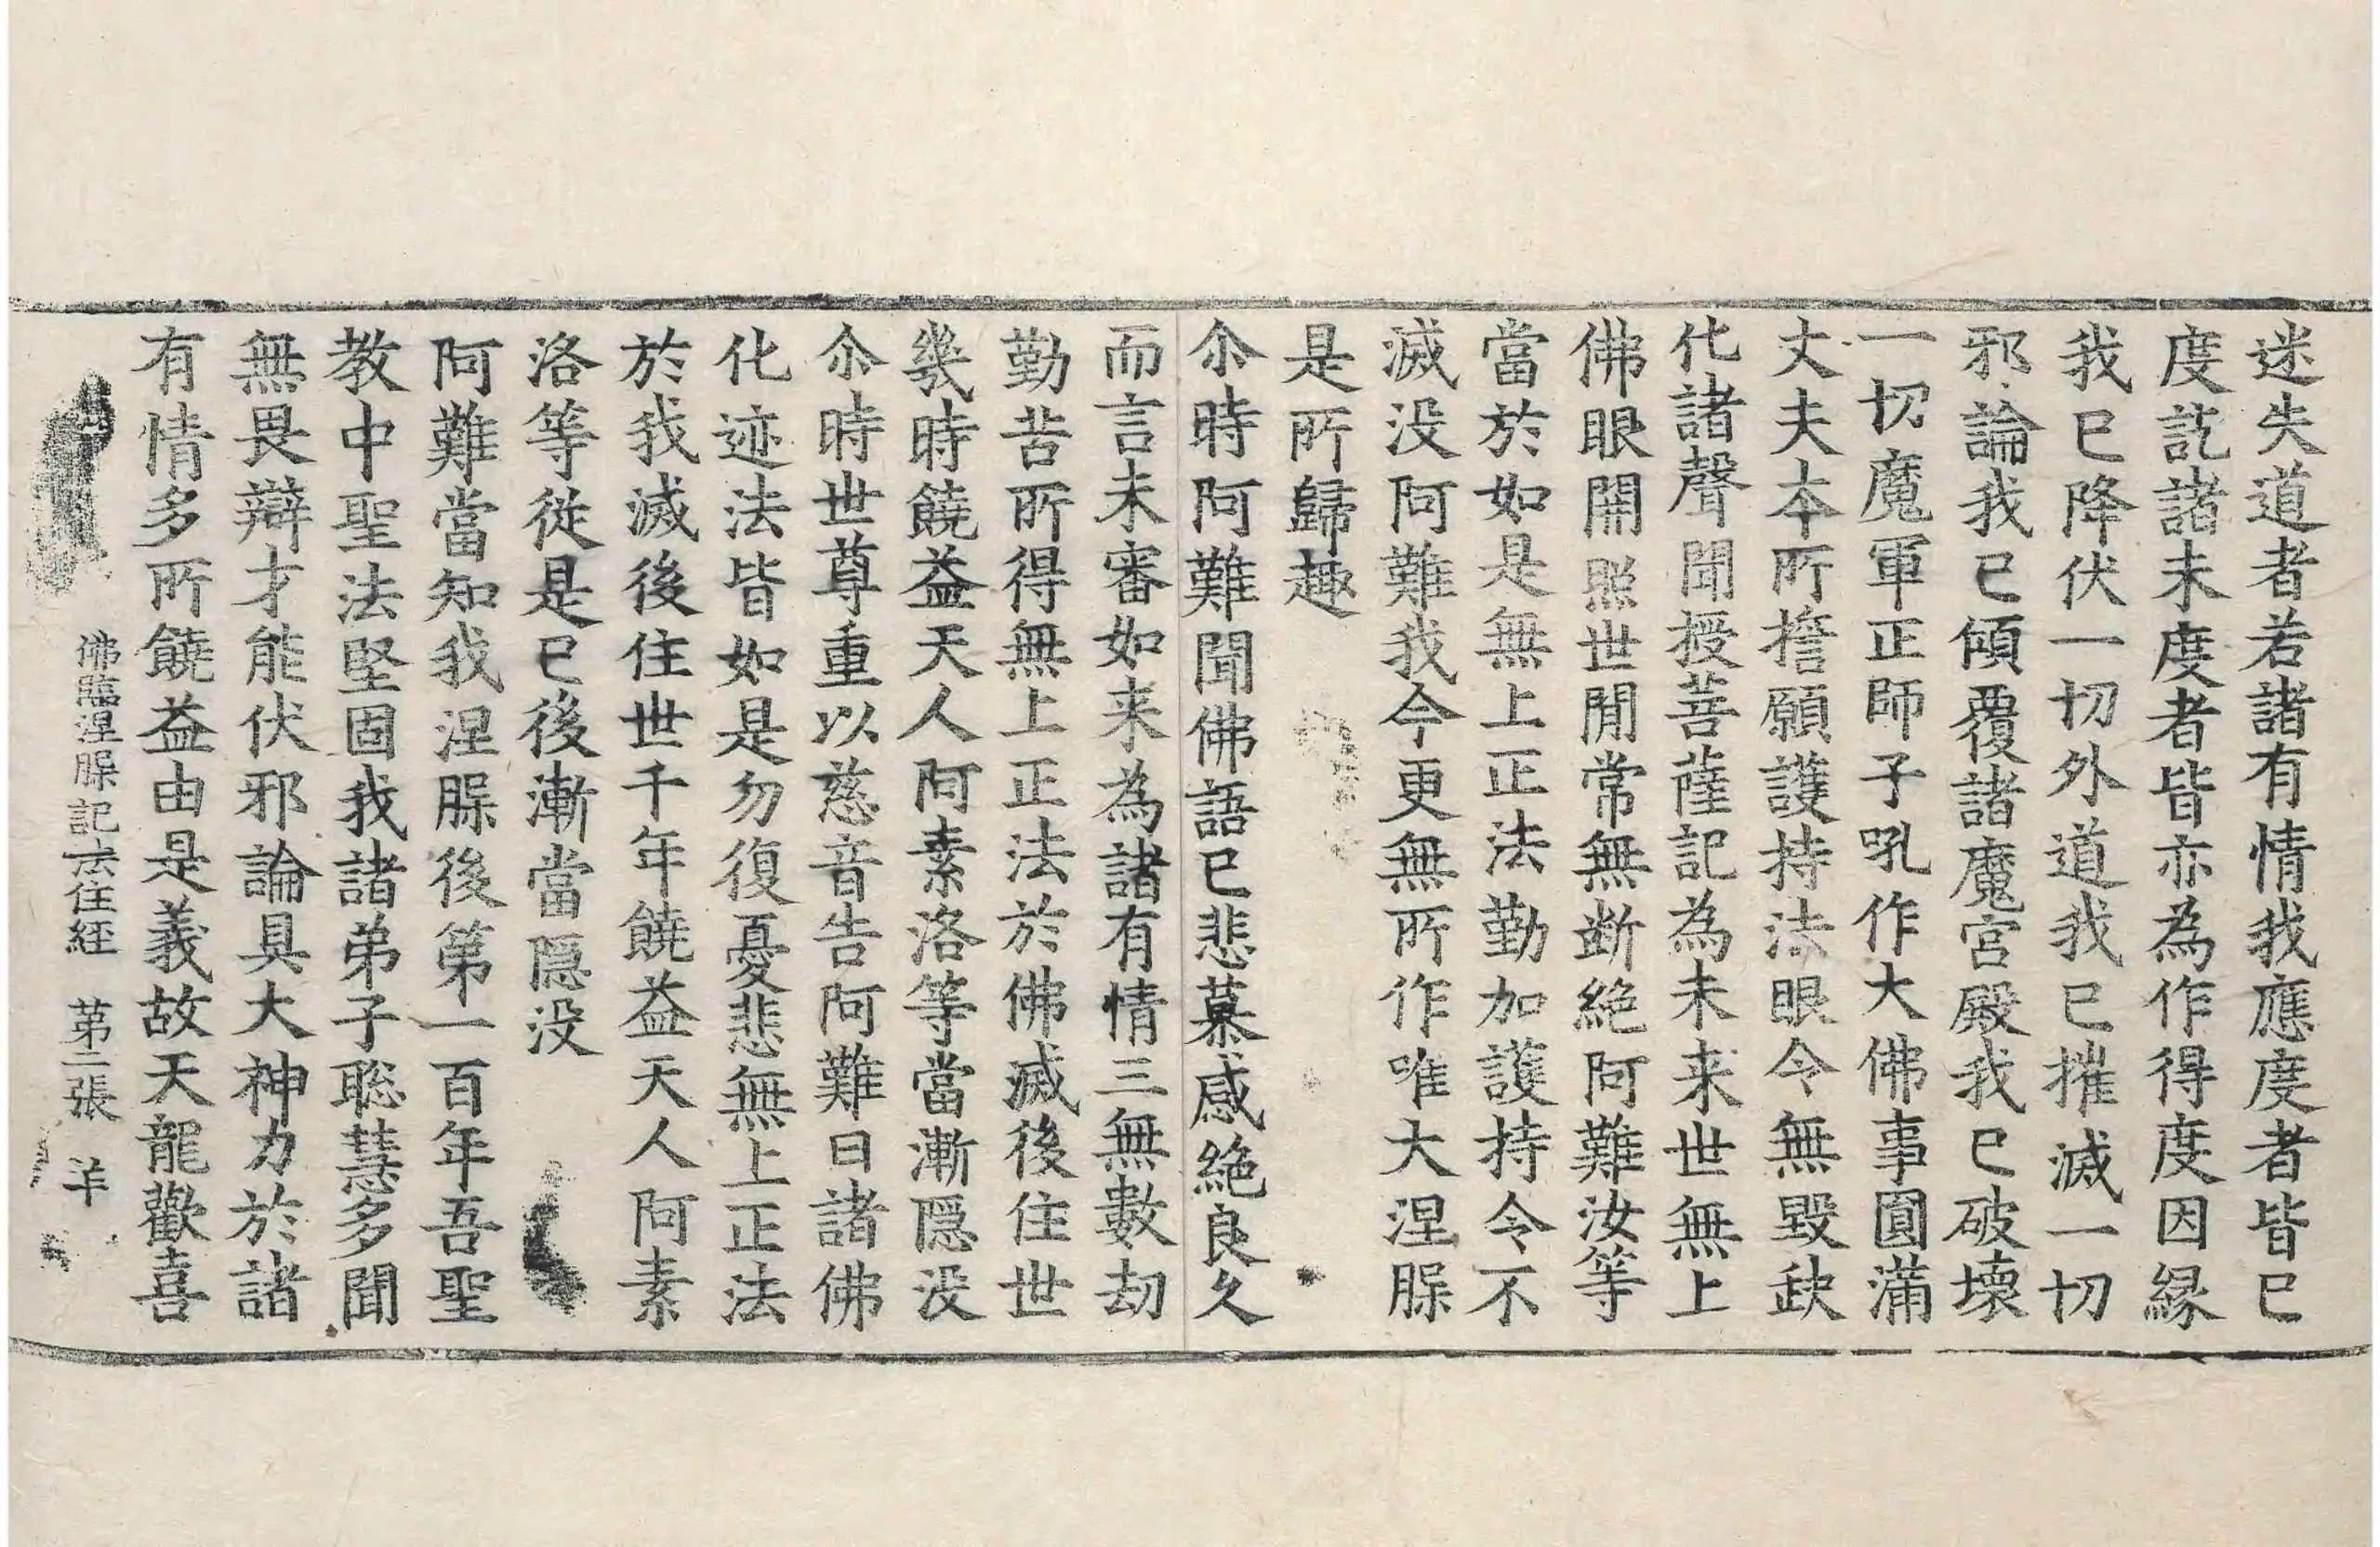 迷失道者若諸有情我應度者皆已
度訖諸未度者皆亦為作得度因縁
我已降伏一切外道我已摧滅一切
邪論我已傾覆諸魔宮殿我已破壞
一切魔軍正師子吼作大佛事圓滿
丈夫本所擔願護持法眼令無毀缺
化諸聲聞授菩薩記為未来世無上
佛眼開照世間常無斷絕阿難汝等
當於如是無上正法勤加護持令不
滅没阿難我今更無所作唯大涅𣵀
是所歸趣
尒時阿難聞佛語已悲慕感絕良久
而言未審如来為諸有情三無數劫
勤苦所得無上正法於佛滅後住世
幾時饒益天人阿素洛等當漸隱没
尒時世尊重以慈音告阿難曰諸佛
化迹法皆如是勿復憂悲無上正法
於我滅後住世千年饒益天人阿素
洛等從是已後漸當隱没
阿難當知我涅𣵀後第一百年吾聖
教中聖法堅固我諸弟子聡慧多聞
無畏辯才能伏邪論具大神力於諸
有情多所饒益由是義故天龍歡喜
佛臨涅𣵀記法住經 第二張 羊